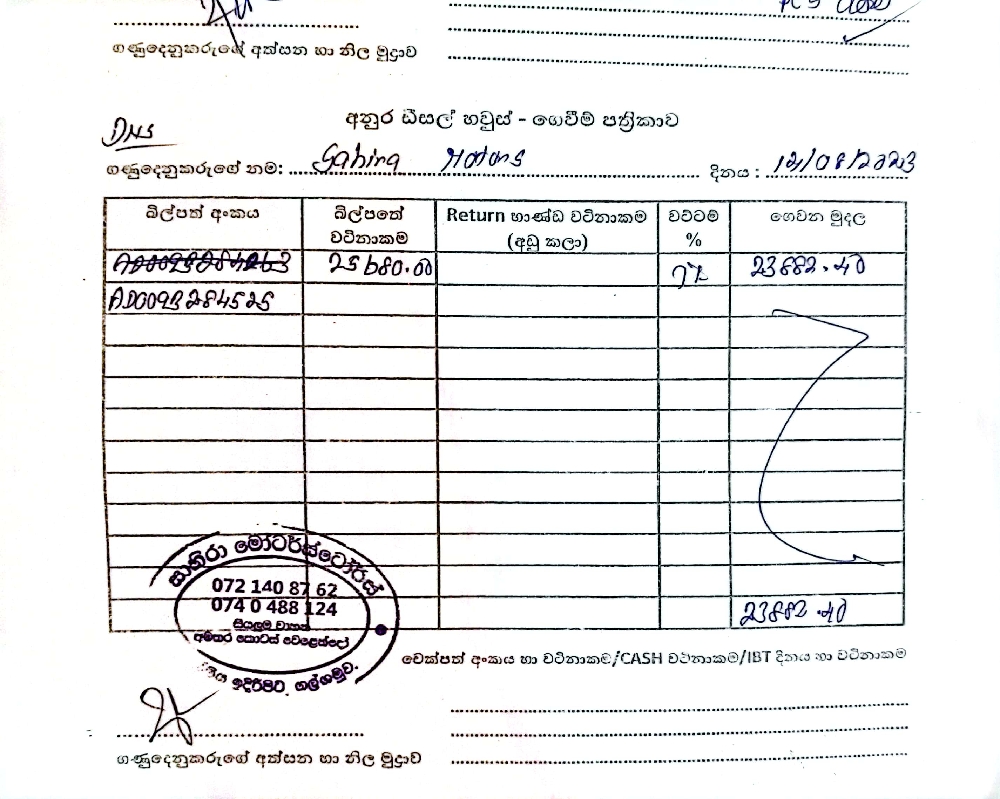 PCS
ගණුදෙනුකරුගේ අත්සන හා නිල මුද්‍රාව
DHS
අනුර ඩීසල් හවුස් - ගෙවීම් පත්‍රිකාව
ගණුදෙනුකරුගේ නම: Sahira Motors දිනය : 12/08/2023
බිල්පත් අංකය බිල්පතේ වටිනාකම Return භාණ්ඩ වටිනාකම (අඩු කලා) වට්ටම් % ගෙවන මුදල
25680.00 7% 23882.40
AD0093284525
23882.40
සාහිරා මෝටර්ස්ටෝර්ස්
072 140 87 62
074 0 488 124
සියලුම වාහන
අමතර කොටස් වෙළෙන්දෝ
ඉදිරිපිට, ගල්ගමුව.
චෙක්පත් අංකය හා වටිනාකම/CASH වටිනාකම/IBT දිනය හා වටිනාකම
ගණුදෙනුකරුගේ අත්සන හා නිල මුද්‍රාව